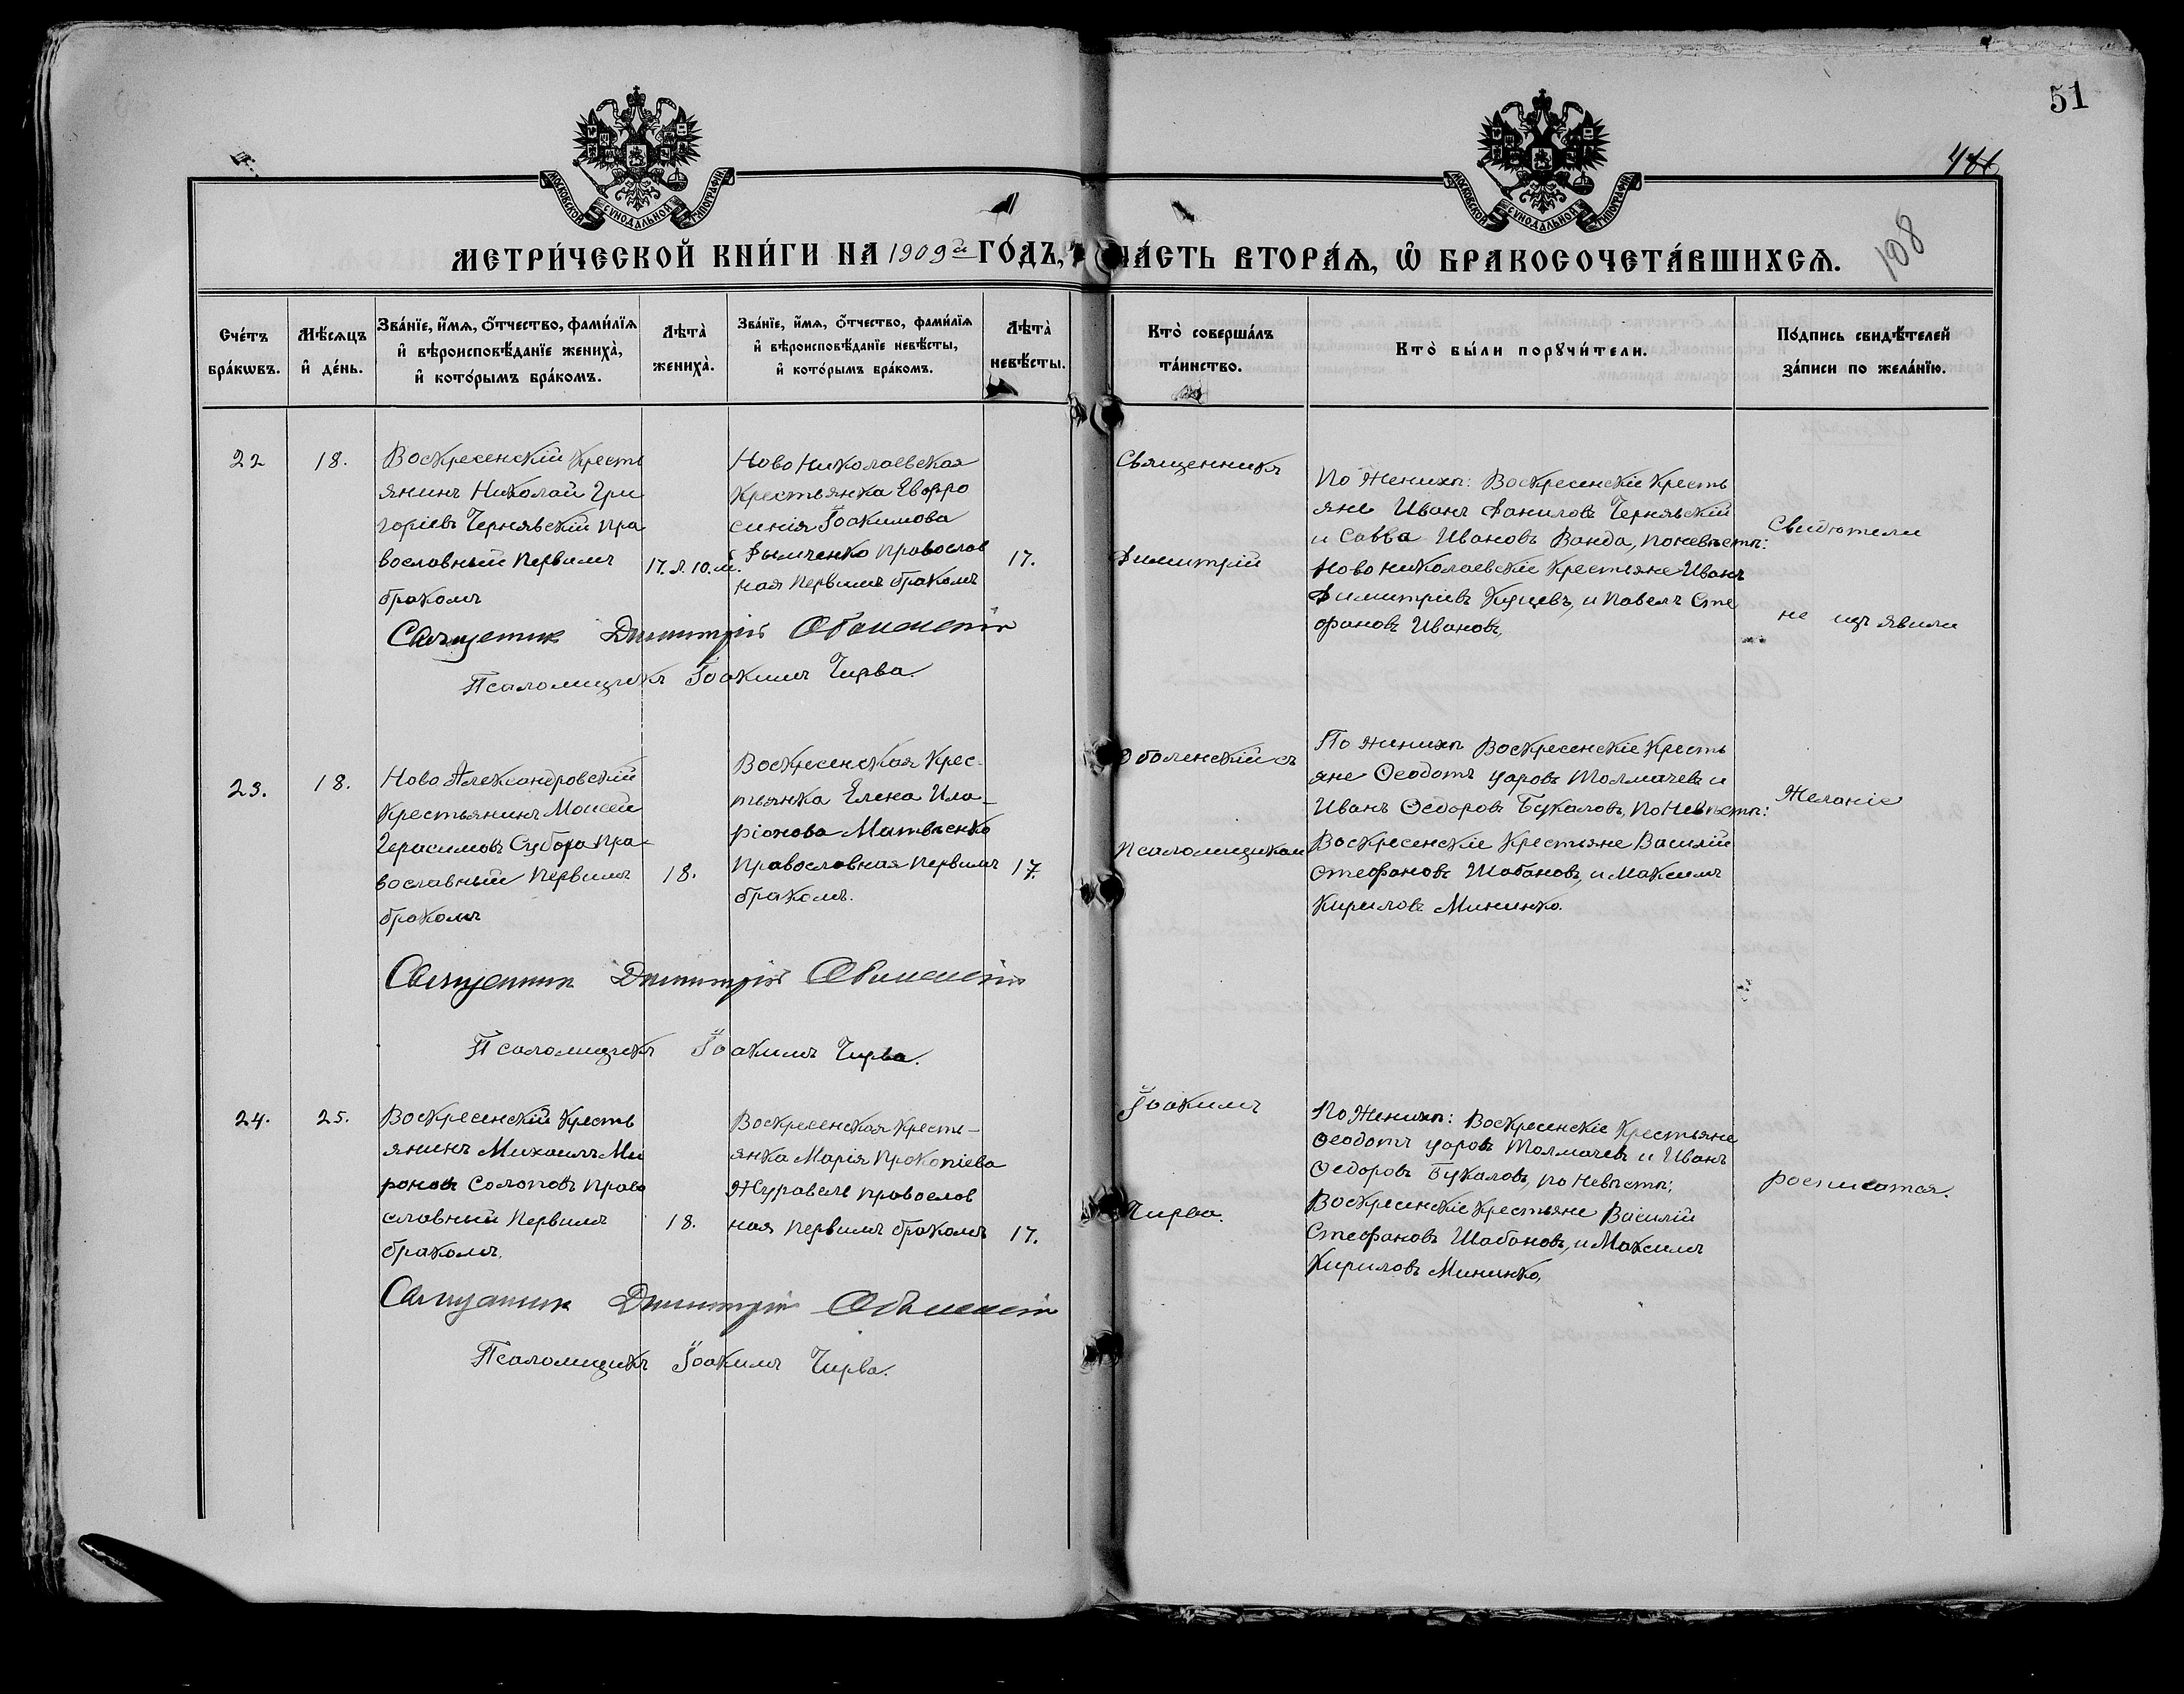 51
108
МОСКОВСКОЙ СѴНОДАЛЬНОЙ ТИПОГРАФІИ
МОСКОВСКОЙ СѴНОДАЛЬНОЙ ТИПОГРАФІИ
МЕТРИ́ЧЕСКОЙ КНИ́ГИ НА 1909й ГО́ДЪ, ЧА́СТЬ ВТОРА́Ѧ, Ѽ БРАКОСОЧЕТА́ВШИХСѦ.
Сче́тъ бра́кѡвъ.
Мѣ́сѧцъ и҆ де́нь.
Зва́нїе, и҆́мѧ, ѻ҆́тчество, фами́лїѧ
и҆ вѣроисповѣ́данїе жениха̀,
и҆ кото́рымъ бра́комъ.
Лѣта̀ жениха̀.
Зва́нїе, и҆́мѧ, ѻ҆́тчество, фами́лїѧ
и҆ вѣроисповѣ́данїе невѣ́сты,
и҆ кото́рымъ бра́комъ.
Лѣта̀ невѣ́сты.
Кто̀ соверша́лъ та́инство.
Кто̀ бы́ли порꙋчи́тели.
По́дпись свидѣ́телей за́писи по жела́нїю.
22
18.
Воскресенскій Кресть
янинъ Николай Гри
горіевъ Чернявскій пра
вославный первымъ
бракомъ
17. л. 10. м.
Ново Николаевская
Крестьянка Евфро
синія Іоакимова
Дымченко православ
ная первымъ бракомъ
17.
Священникъ
Димитрій
По Женихѣ: Воскресенскіе Кресть
яне Иванъ Даниловъ Чернявскій
и Савва Ивановъ Ванда, по невѣстѣ:
Ново николаевскіе Крестьяне Иванъ
Димитріевъ Куцевъ, и Павелъ Сте
фановъ Ивановъ,
Свидѣтели
не изъявили
Священник Димитрій Оболенскій
Псаломщикъ Іоакимъ Чирва.
23.
18.
Ново Александровскій
Крестьянинъ Моисей
Герасимовъ Субота пра
вославный первымъ
бракомъ
18.
Воскресенская Крес-
тьянка Елена Ила-
ріонова Матвѣенко
Православная первымъ
бракомъ.
17.
Оболенскій съ
псаломщикомъ
По Женихѣ Воскресенскіе Кресть
яне Ѳеодотъ Уаровъ Толмачевъ и
Иванъ Ѳедоровъ Букаловъ, по Невѣстѣ:
Воскресенскіе Крестьяне Василій
Стефановъ Шабановъ, и Максимъ
Кириловъ Мининко.
Желаніе
Священник Димитрій Оболенскій
Псаломщикъ Іоакимъ Чирва.
24.
25.
Воскресенскій Кресть
янинъ Михаилъ Ми
роновъ Солоповъ право
славный первымъ
бракомъ.
18.
Воскресенская Кресть-
янка Марія Прокопіева
Журавель православ
ная первымъ бракомъ
17.
Іоакимъ
Чирва.
По Женихѣ: Воскресенскіе Крестьяне
Ѳеодотъ Уаровъ Толмачевъ и Иванъ
Ѳедоровъ Букаловъ, по невѣстѣ;
Воскресенскіе Крестьяне Василій
Стефановъ Шабановъ, и Максимъ
Кириловъ Мининко,
росписатся.
Священник Димитрій Оболенскій
Псаломщикъ Іоакимъ Чирва.